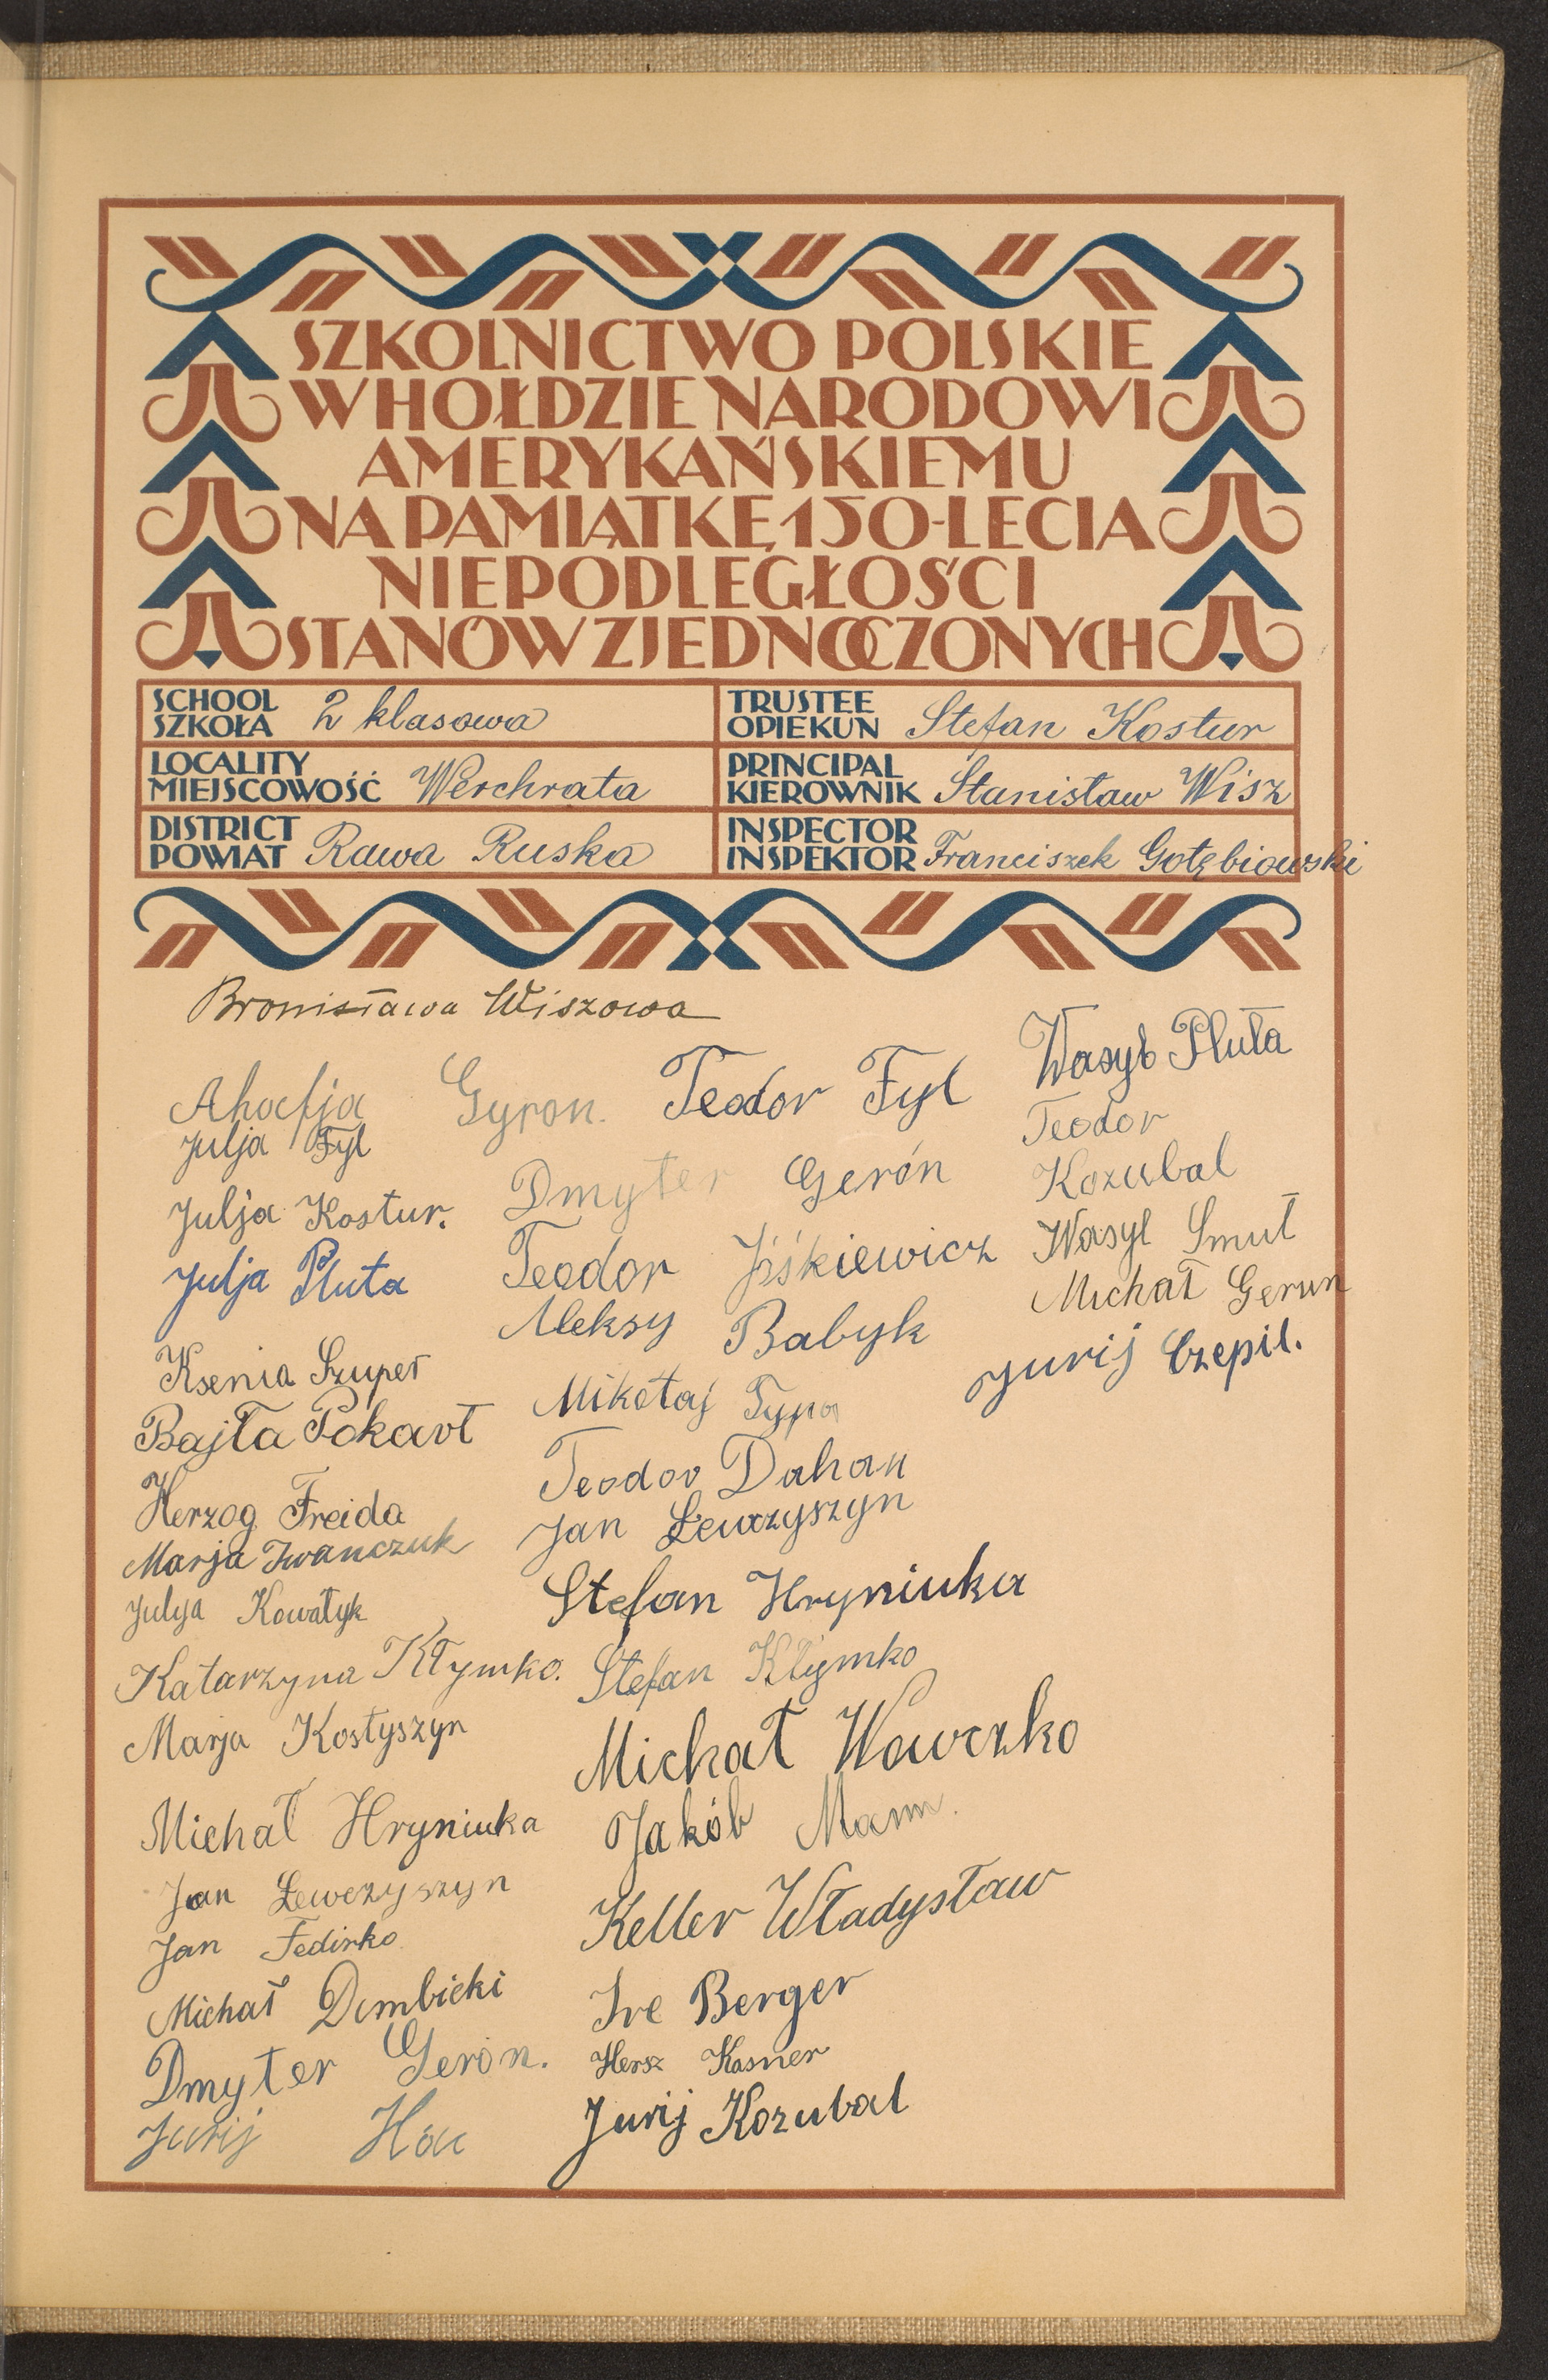 SZKOLNICTWO POLSKIE
W HOŁDZIE NARODOWI
AMERYKAŃSKIEMU
NA PAMIĄTKĘ 150-LECIA
NIEPODLEGŁOŚCI
STANÓW ZJEDNOCZONYCH
SCHOOL
SZKOŁA 2 klasowa
TRUSTEE
OPIEKUN Stefan Kostur
LOCALITY
MIEJSCOWOŚĆ Werchrata
PRINCIPAL
KIEROWNIK Stanisław Wisz
DISTRICT
POWIAT Rawa Ruska
INSPECTOR
INSPEKTOR Franciszek Gołębiowski
Bronisława Wiszowa
Ahafja Gyron.
Julja Fyl
Julja Kostur.
Julja Pluta
Ksenia Szupeł
Bajła Pokart
Herzog Freida
Marja Iwanczuk
Julja Kowałyk
Katarzyna Kłymko.
Marja Kostyszyn
Michał Hryniuka
Jan Lewczyszyn
Jan Fedirko
Michał Dembicki
Dmyter Geron.
Jurij
Teodor Fyl
Dmyter Gerón
Teodor Jśkiewicz
Aleksy Babyk
Mikołaj Typa
Teodor Dahan
Jan Lewczyszyn
Stefan Hryniuka
Stefan Kłymko
Michał Wawczko
Jakób Mann.
Keller Władysław
Ire Berger
Hersz Kasner
Jurij Kozubal
Wasyl Pluta
Teodor
Kozubal
Wasyl Smut
Michał Gerun
Jurij Czepil.